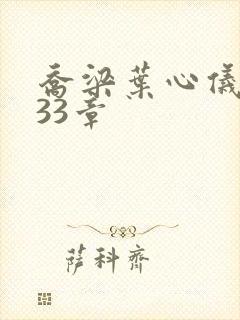 乔梁葉心儀
33章
萨科齊